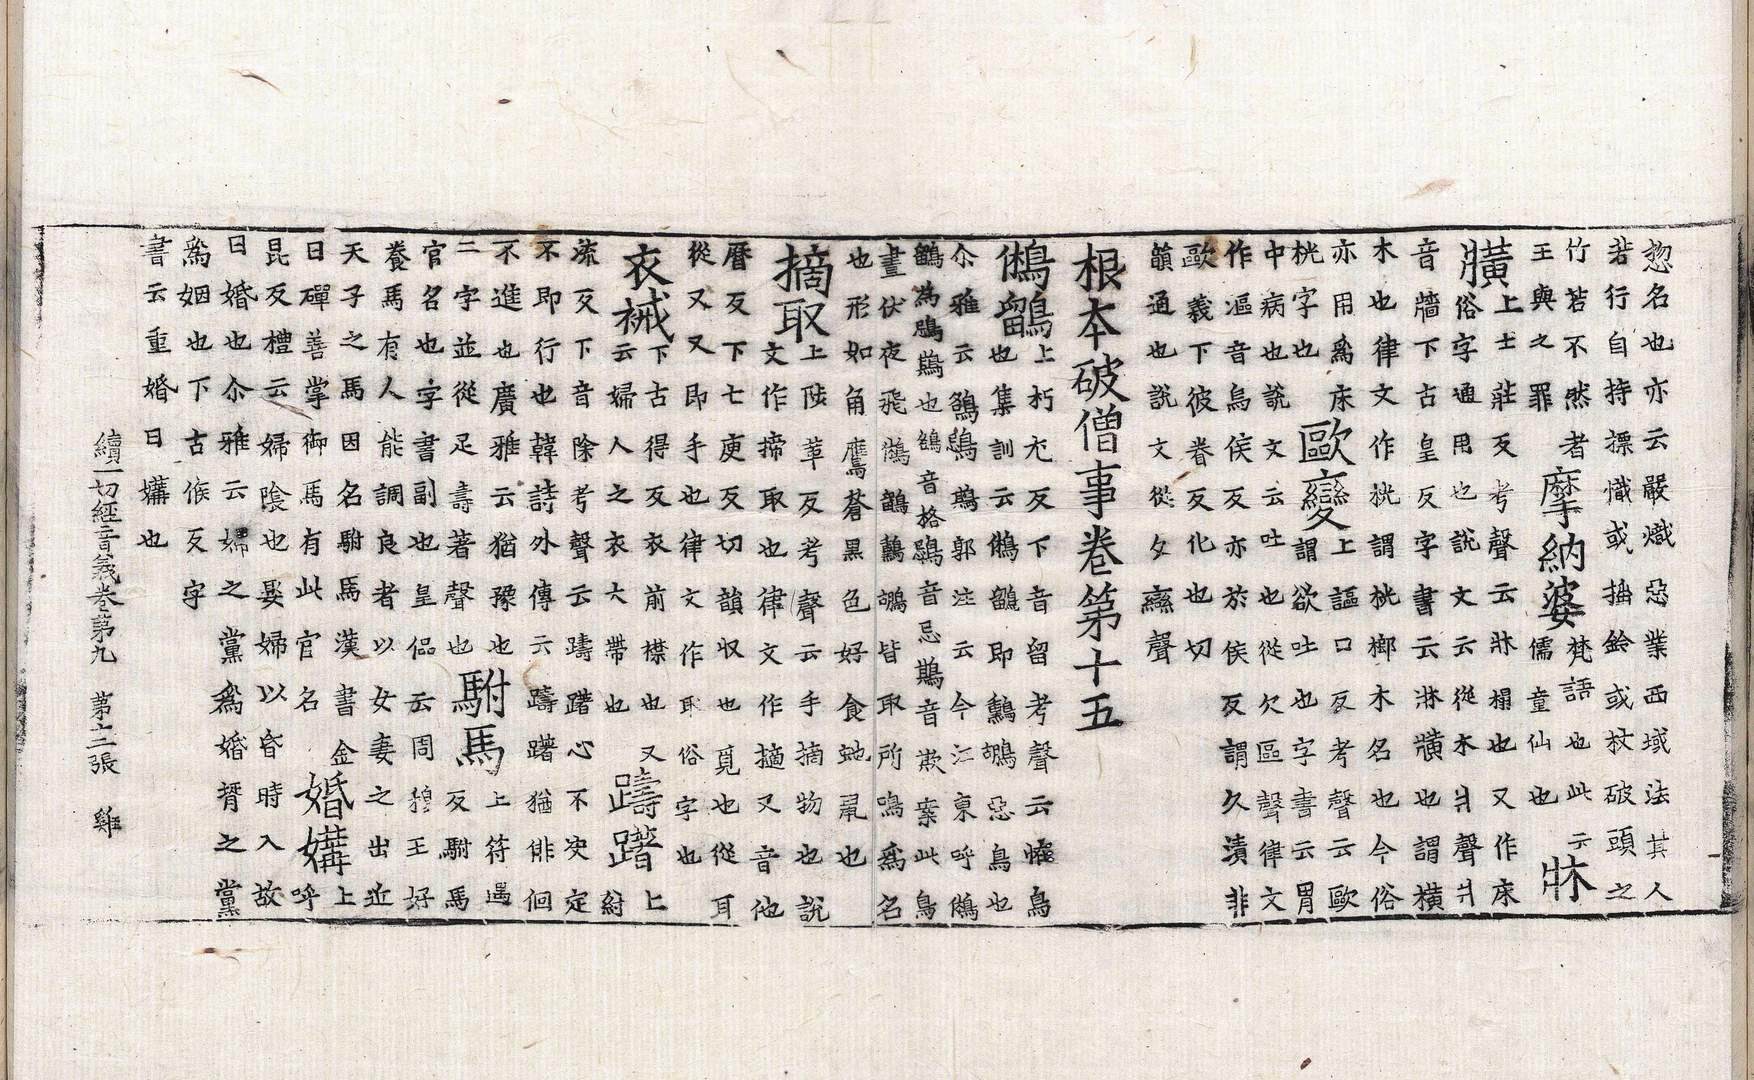 惣名也亦云嚴熾惡業西域法其人
若行自持摽幟或揷鈴或杖破頭之
竹若不然者
王與之罪
摩納婆
梵語也此云
儒童仙也
牀
橫
上士莊反考聲云牀榻也又作床
俗字通用也說文云從木爿聲爿
音牆下古皇反字書云牀橫也謂橫
木也律文作桄謂桄榔木名也今俗
亦用爲床
桄字也
歐變
上謳口反考聲云歐
謂欲吐也字書云胃
中病也說文云吐也從欠區聲律文
作漚音烏侯反亦於侯反謂久漬非
歐義下彼眷反化也切
韻通也說文從攵䜌聲
根本破僧事卷第十五
鵂鶹
上朽尤反下音留考聲云恠鳥
也集訓云鵂鶹即鸋鴂惡鳥也
尒雅云鵅鵋䳢郭注云今江東呼鵂
鶹爲鵋䳢也鵅音格鵋音忌䳢音欺案此鳥
晝伏夜飛鵂鶹鸋鴂皆取所鳴爲名
也形如角鷹蒼黑色好食虵鼠也
摘取
上陟革反考聲云手摘物也說
文作擿取也律文作擿又音他
曆反下七庾反切韻収也覓也從耳
從又又即手也律文作耴俗字也
衣裓
下古得反衣前襟也又
云婦人之衣大帶也
躊躇
上紂
流反下音除考聲云躊躇心不決定
不即行也韓詩外傳云躊躇猶俳佪
不進也廣雅云猶豫也
二字並從足壽著聲也
駙馬
上符遇
反駙馬
官名也字書副也皇侃云周穆王好
養馬有人能調良者以女妻之出近
天子之馬因名駙馬漢書金
日磾善掌御馬有此官名
婚媾
上
呼
昆反禮云婦陰也娶婦以昏時入故
曰婚也尒雅云婦之黨爲婚壻之黨
爲姻也下古候反字
書云重婚曰媾也
續一切經音義卷第九　第十二張　雞